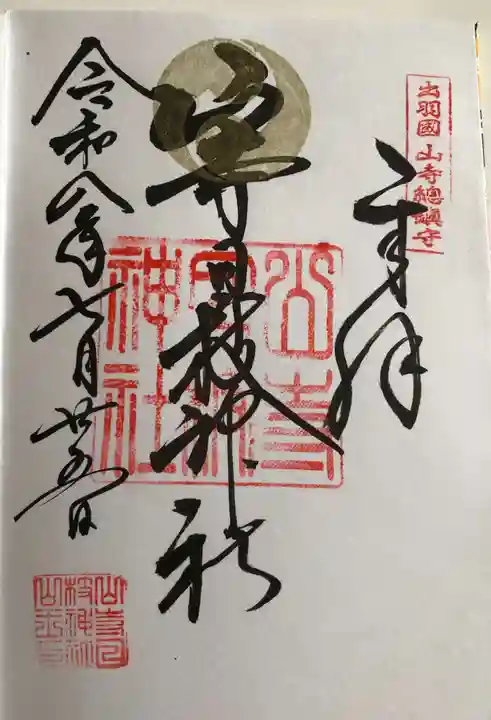 出羽國 山寺總鎮守
奉拝
山寺日枝神社
山寺
日枝
神社
令和八年七月廿五日
山寺日
枝神社